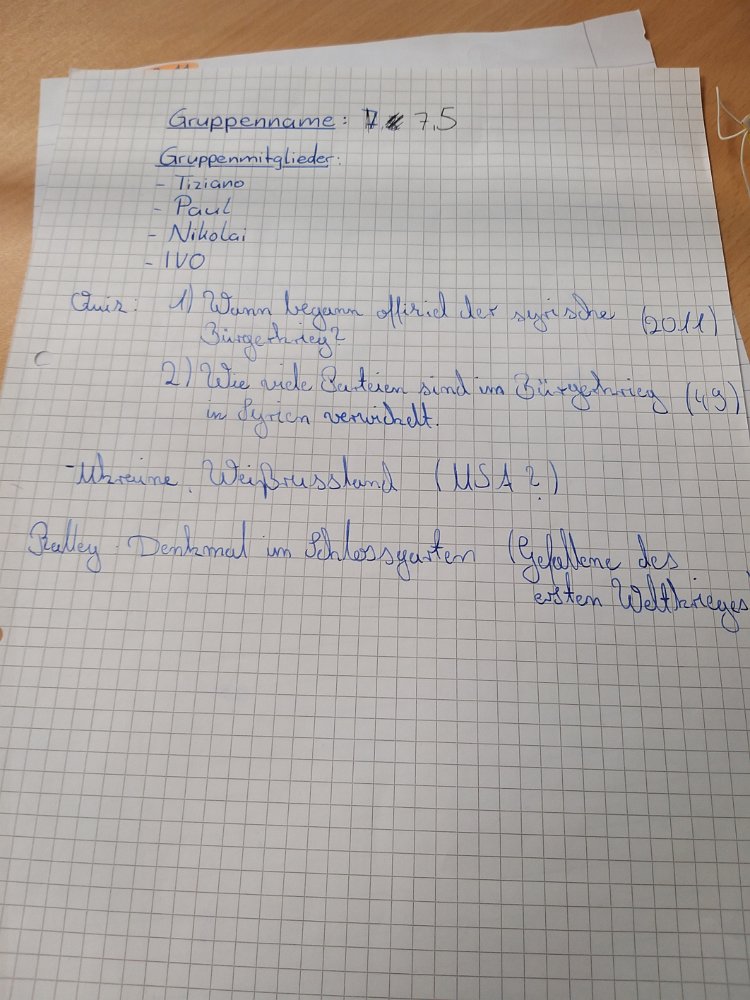 Gruppenname: 7,5
Gruppenmitglieder:
- Tiziano
- Paul
- Nikolai
- IVO
Quiz: 1) Wann begann offiziel der syrische (2011)
Bürgerkrieg?
2) Wie viele Parteien sind im Bürgerkrieg (49)
in Syrien verwickelt.
- Ukraine, Weißrussland (USA?)
Ralley: Denkmal im Schlossgarten (Gefallene des
ersten Weltkrieges